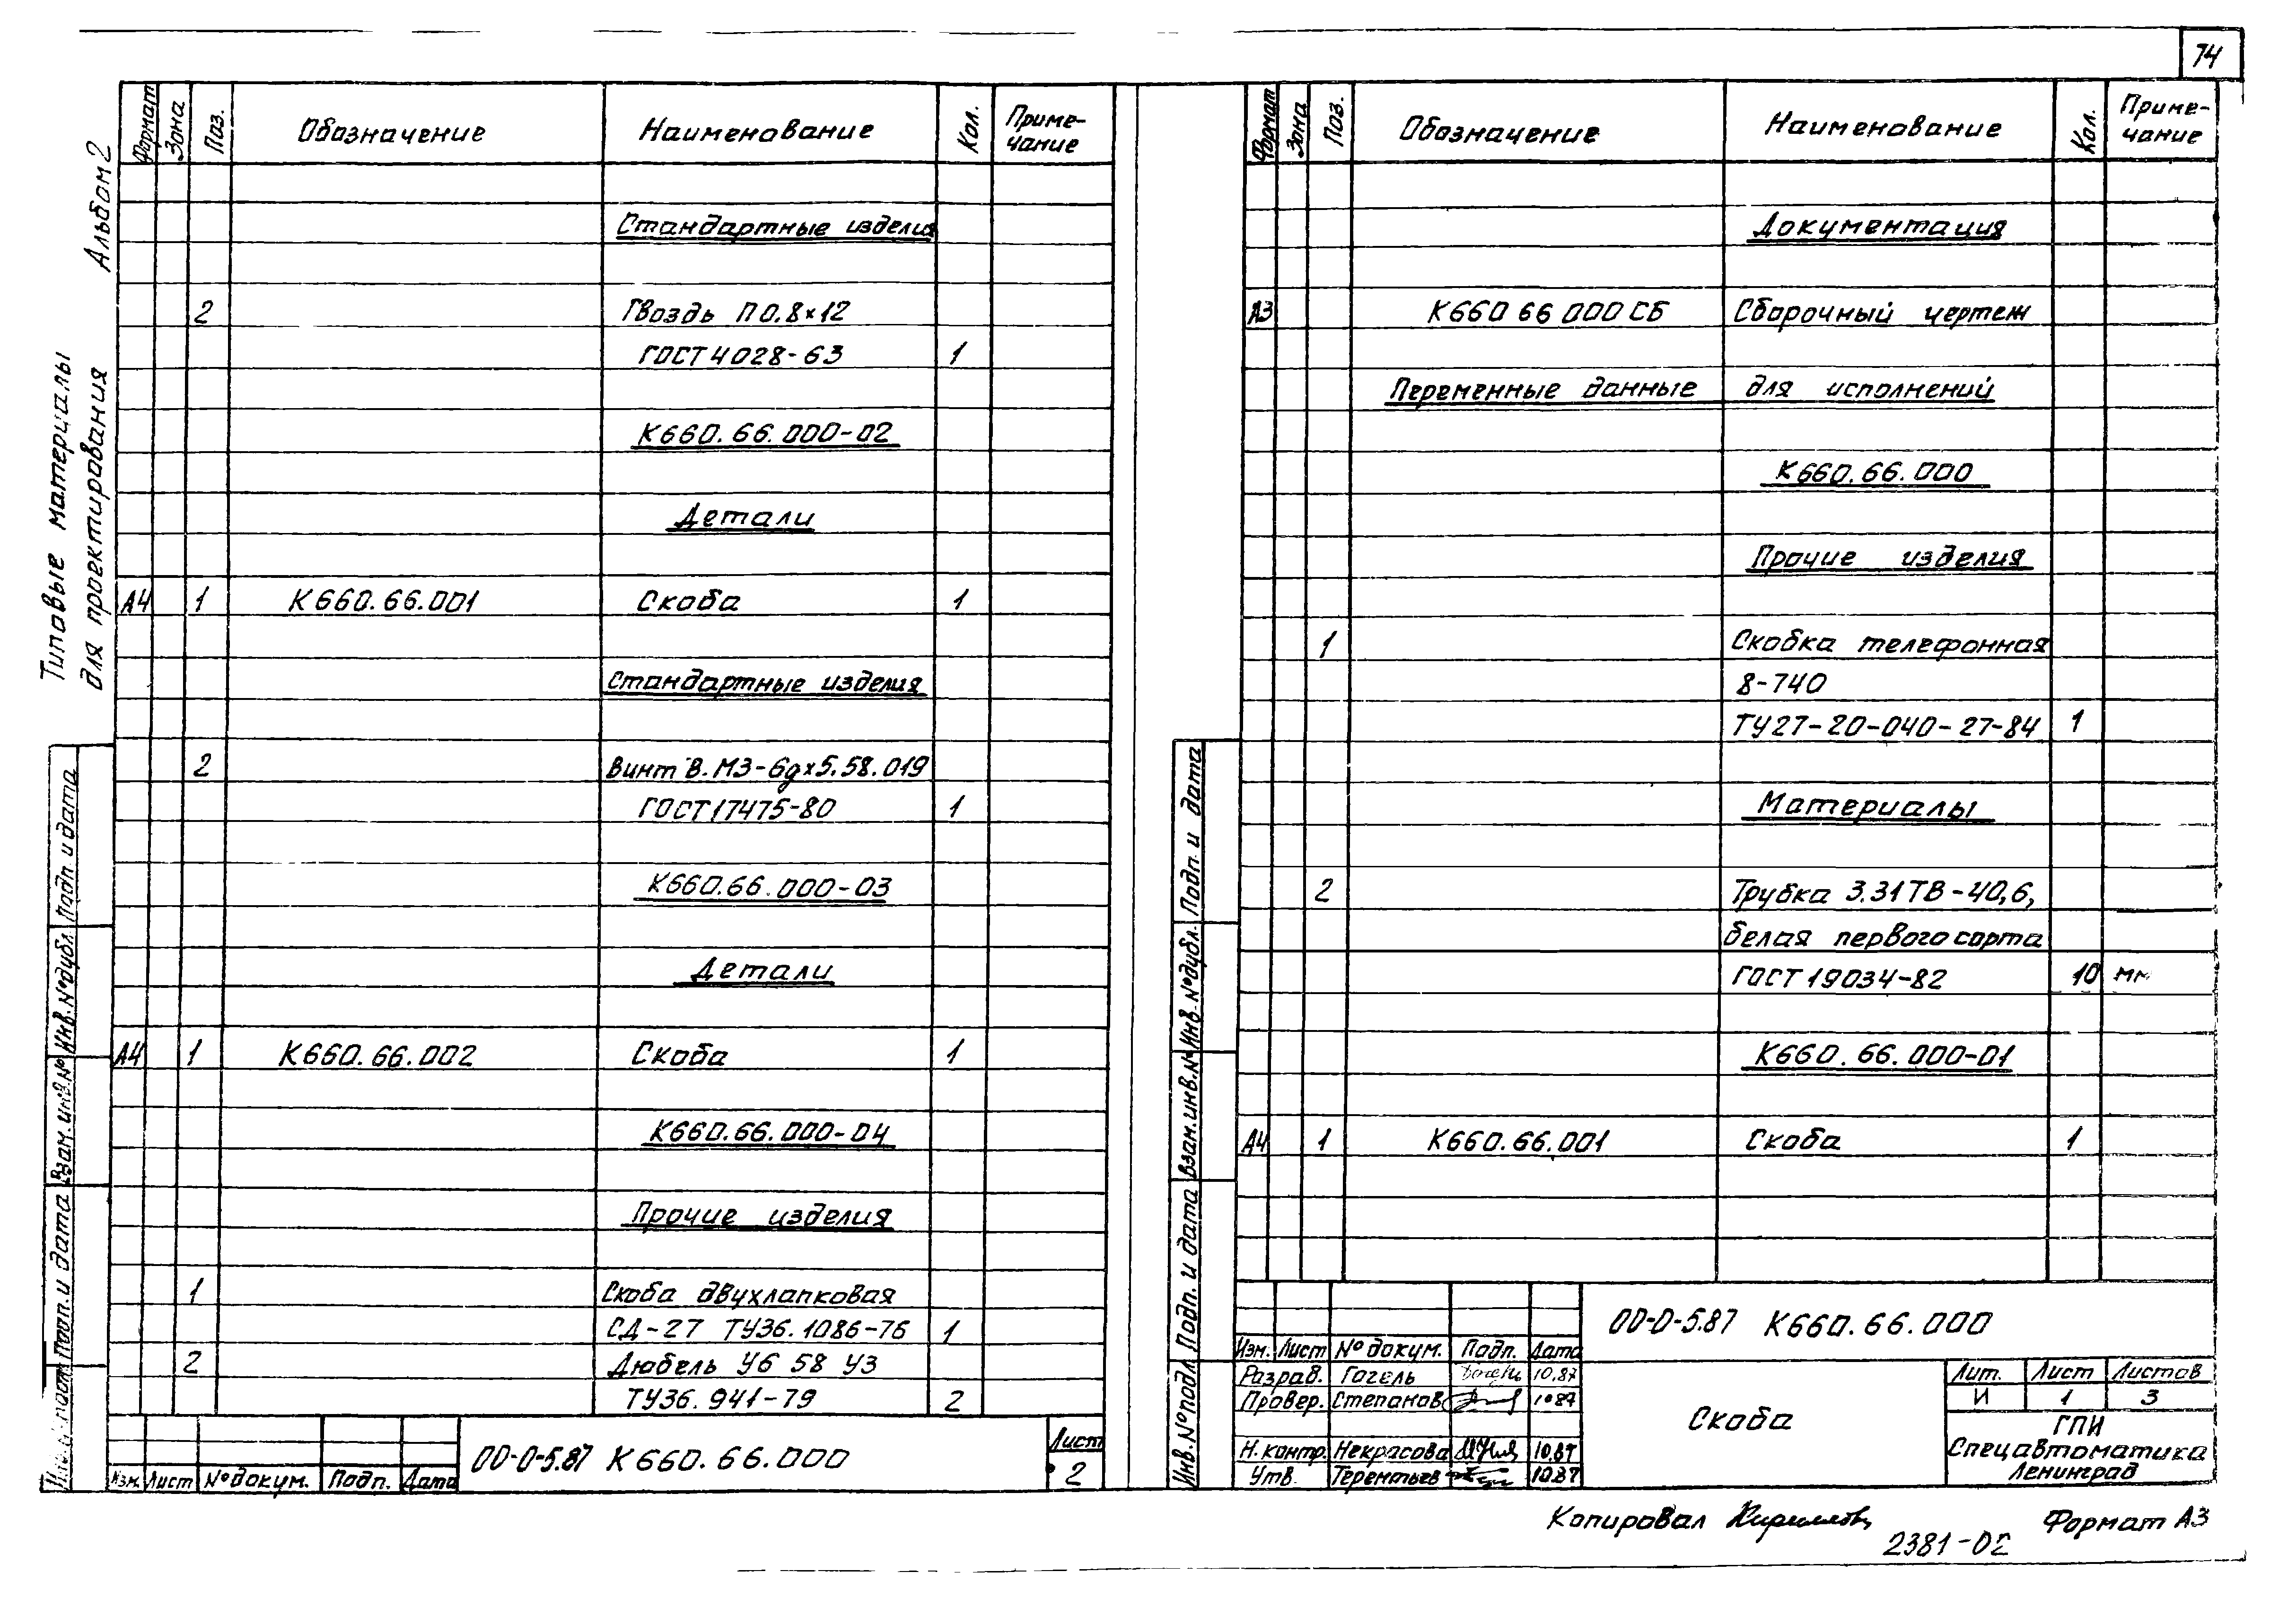 74
Альбом 2
Типовые материалы
для проектирования
Формат Зона Поз. Обозначение Наименование Кол. Приме-
чание
Стандартные изделия
2 Гвоздь П 0.8×12
ГОСТ 4028-63 1
К660.66.000-02
Детали
А4 1 К660.66.001 Скоба 1
Стандартные изделия
2 Винт В.М3-6g×5.58.019
ГОСТ 17475-80 1
К660.66.000-03
Детали
А4 1 К660.66.002 Скоба 1
К660.66.000-04
Прочие изделия
1 Скоба двухлапковая
СД-27 ТУ36.1086-76 1
2 Дюбель У6 58 У3
ТУ36.941-79 2
Подп. и дата
Инв. № дубл.
Взам. инв. №
Подп. и дата
Изм. Лист № докум. Подп. Дата
00-0-5.87 К660.66.000
Лист
2
Формат Зона Поз. Обозначение Наименование Кол. Приме-
чание
Документация
А3 К660 66 000 СБ Сборочный чертеж
Переменные данные для исполнений
К660.66.000
Прочие изделия
1 Скобка телефонная
8-740
ТУ27-20-040-27-84 1
Материалы
2 Трубка 3.31ТВ-40,6,
белая первого сорта
ГОСТ 19034-82 10 мм
К660.66.000-01
А4 1 К660.66.001 Скоба 1
Подп. и дата
Инв. № дубл.
Взам. инв. №
Подп. и дата
Инв. № подл.
00-0-5.87 К660.66.000
Изм. Лист № докум. Подп. Дата
Разраб. Гогель 10.87
Провер. Степанов 10 87
Н. контр. Некрасова 10.87
Утв. Терентьев 10.87
Скоба
Лит. Лист Листов
И 1 3
ГПИ
Спецавтоматика
Ленинград
Копировал
Формат А3
2381-02